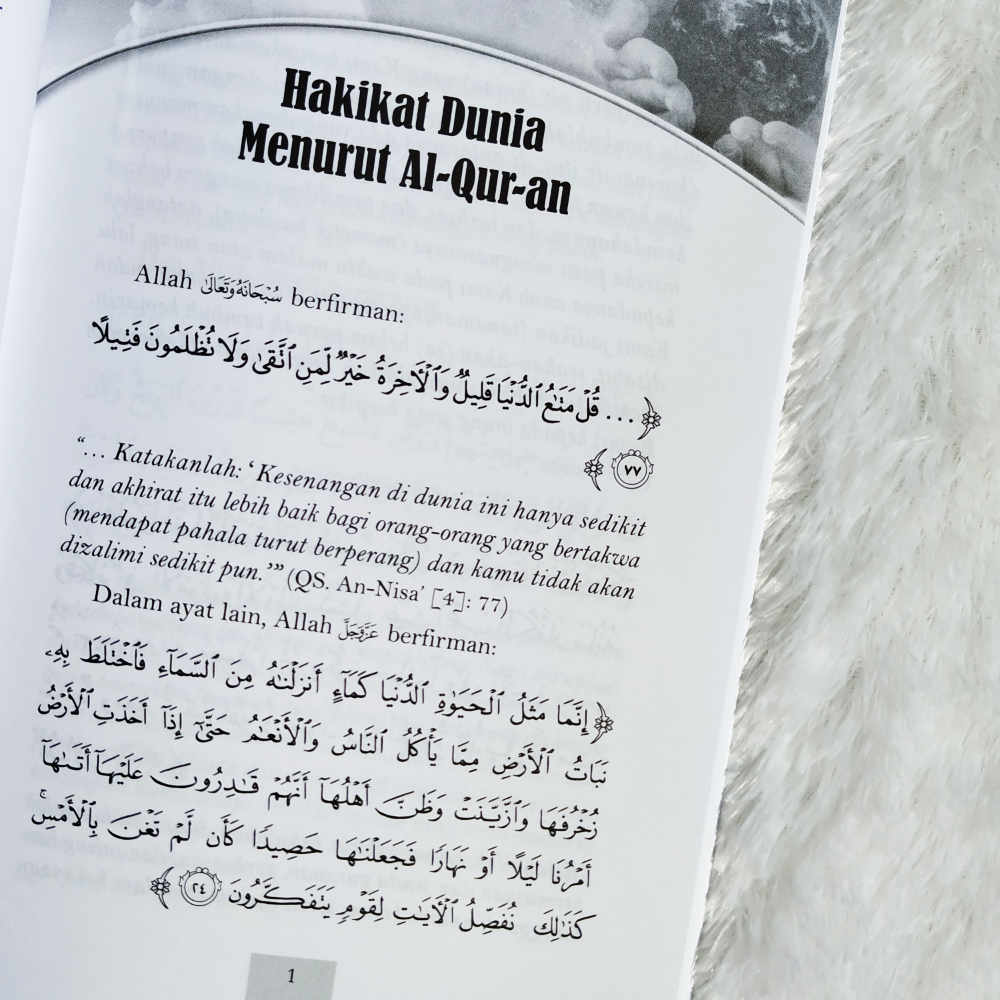 Hakikat Dunia
Menurut Al-Qur-an
Allah سُبْحَانَهُ وَتَعَالَىٰ berfirman:
﴿ ... قُلْ مَتَٰعُ ٱلدُّنْيَا قَلِيلٌ وَٱلْأَخِرَةُ خَيْرٌ لِّمَنِ ٱتَّقَىٰ وَلَا تُظْلَمُونَ فَتِيلًا
٧٧ ﴾
“... Katakanlah: ‘Kesenangan di dunia ini hanya sedikit
dan akhirat itu lebih baik bagi orang-orang yang bertakwa
(mendapat pahala turut berperang) dan kamu tidak akan
dizalimi sedikit pun.’” (QS. An-Nisa’ [4]: 77)
Dalam ayat lain, Allah عَزَّوَجَلَّ berfirman:
﴿ إِنَّمَا مَثَلُ ٱلْحَيَوٰةِ ٱلدُّنْيَا كَمَآءٍ أَنزَلْنَٰهُ مِنَ ٱلسَّمَآءِ فَٱخْتَلَطَ بِهِۦ
نَبَاتُ ٱلْأَرْضِ مِمَّا يَأْكُلُ ٱلنَّاسُ وَٱلْأَنْعَٰمُ حَتَّىٰٓ إِذَآ أَخَذَتِ ٱلْأَرْضُ
زُخْرُفَهَا وَٱزَّيَّنَتْ وَظَنَّ أَهْلُهَآ أَنَّهُمْ قَٰدِرُونَ عَلَيْهَآ أَتَىٰهَآ
أَمْرُنَا لَيْلًا أَوْ نَهَارًا فَجَعَلْنَٰهَا حَصِيدًا كَأَن لَّمْ تَغْنَ بِٱلْأَمْسِ ۚ
كَذَٰلِكَ نُفَصِّلُ ٱلْأَيَٰتِ لِقَوْمٍ يَتَفَكَّرُونَ ٢٤ ﴾
1